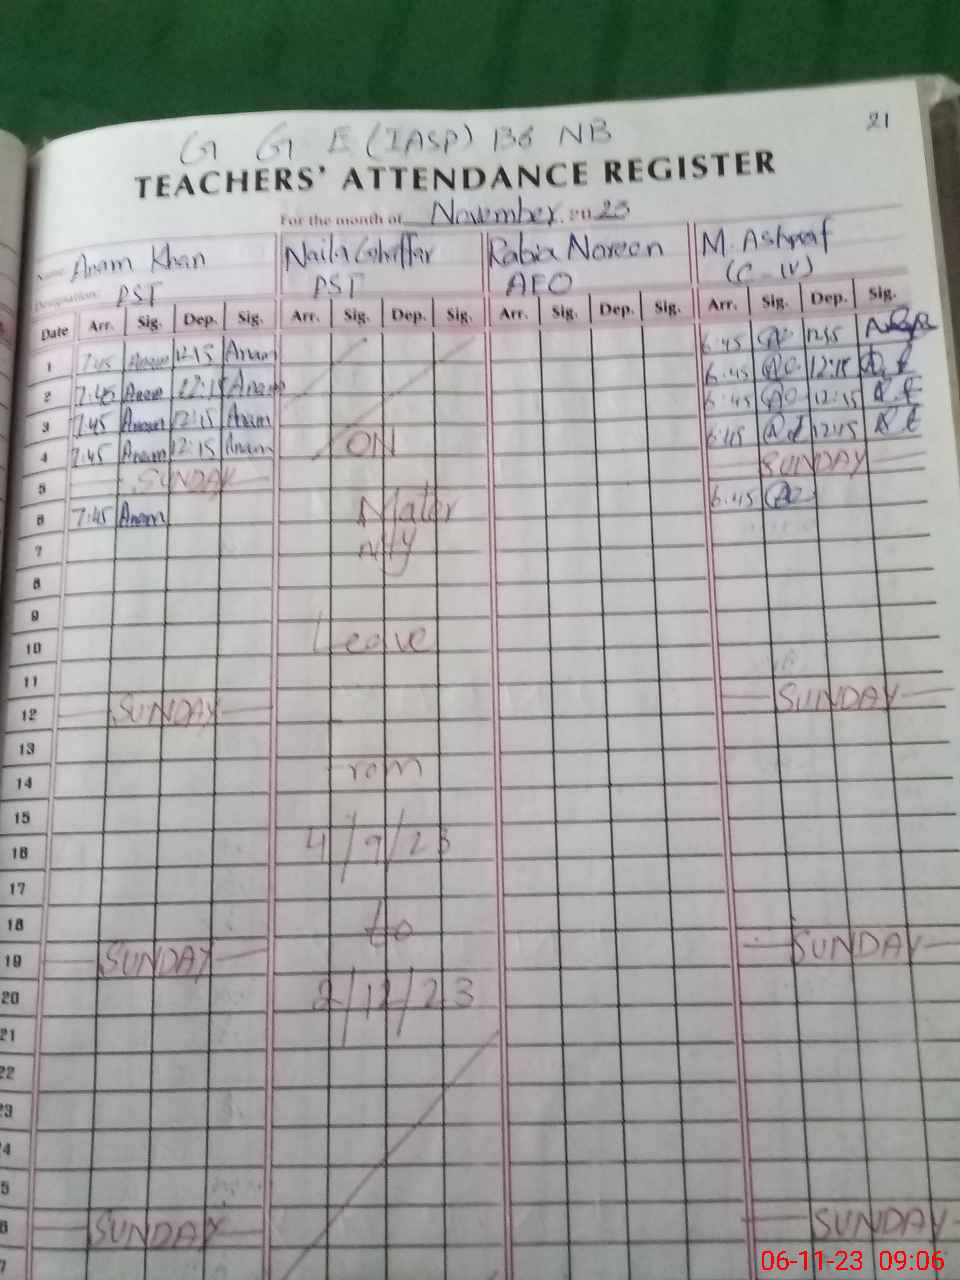 21
G G E (IASP) 136 NB
TEACHERS' ATTENDANCE REGISTER
For the month of November 2023
Name: Anam Khan Naila Ghaffar Rabia Noreen M. Ashraf
Designation: PST PST AEO (C-IV)
Date Arr. Sig. Dep. Sig. Arr. Sig. Dep. Sig. Arr. Sig. Dep. Sig. Arr. Sig. Dep. Sig.
1 7:45 Anam 12:15 Anam 6:45
2 7:45 Anam 12:15 Anam 6:45 12:15
3 7:45 Anam 12:15 Anam 6:45 12:15
4 7:45 Anam 12:15 Anam ON 6:45 12:45
5 SUNDAY SUNDAY
6 7:45 Anam Mater 6:45
7 nity
8
9
10 Leave
11
12 SUNDAY SUNDAY
13
14 From
15
16 4/9/23
17
18 to
19 SUNDAY SUNDAY
20 2/12/23
21
22
23
4
5
6 SUNDAY SUNDAY
7
06-11-23 09:06